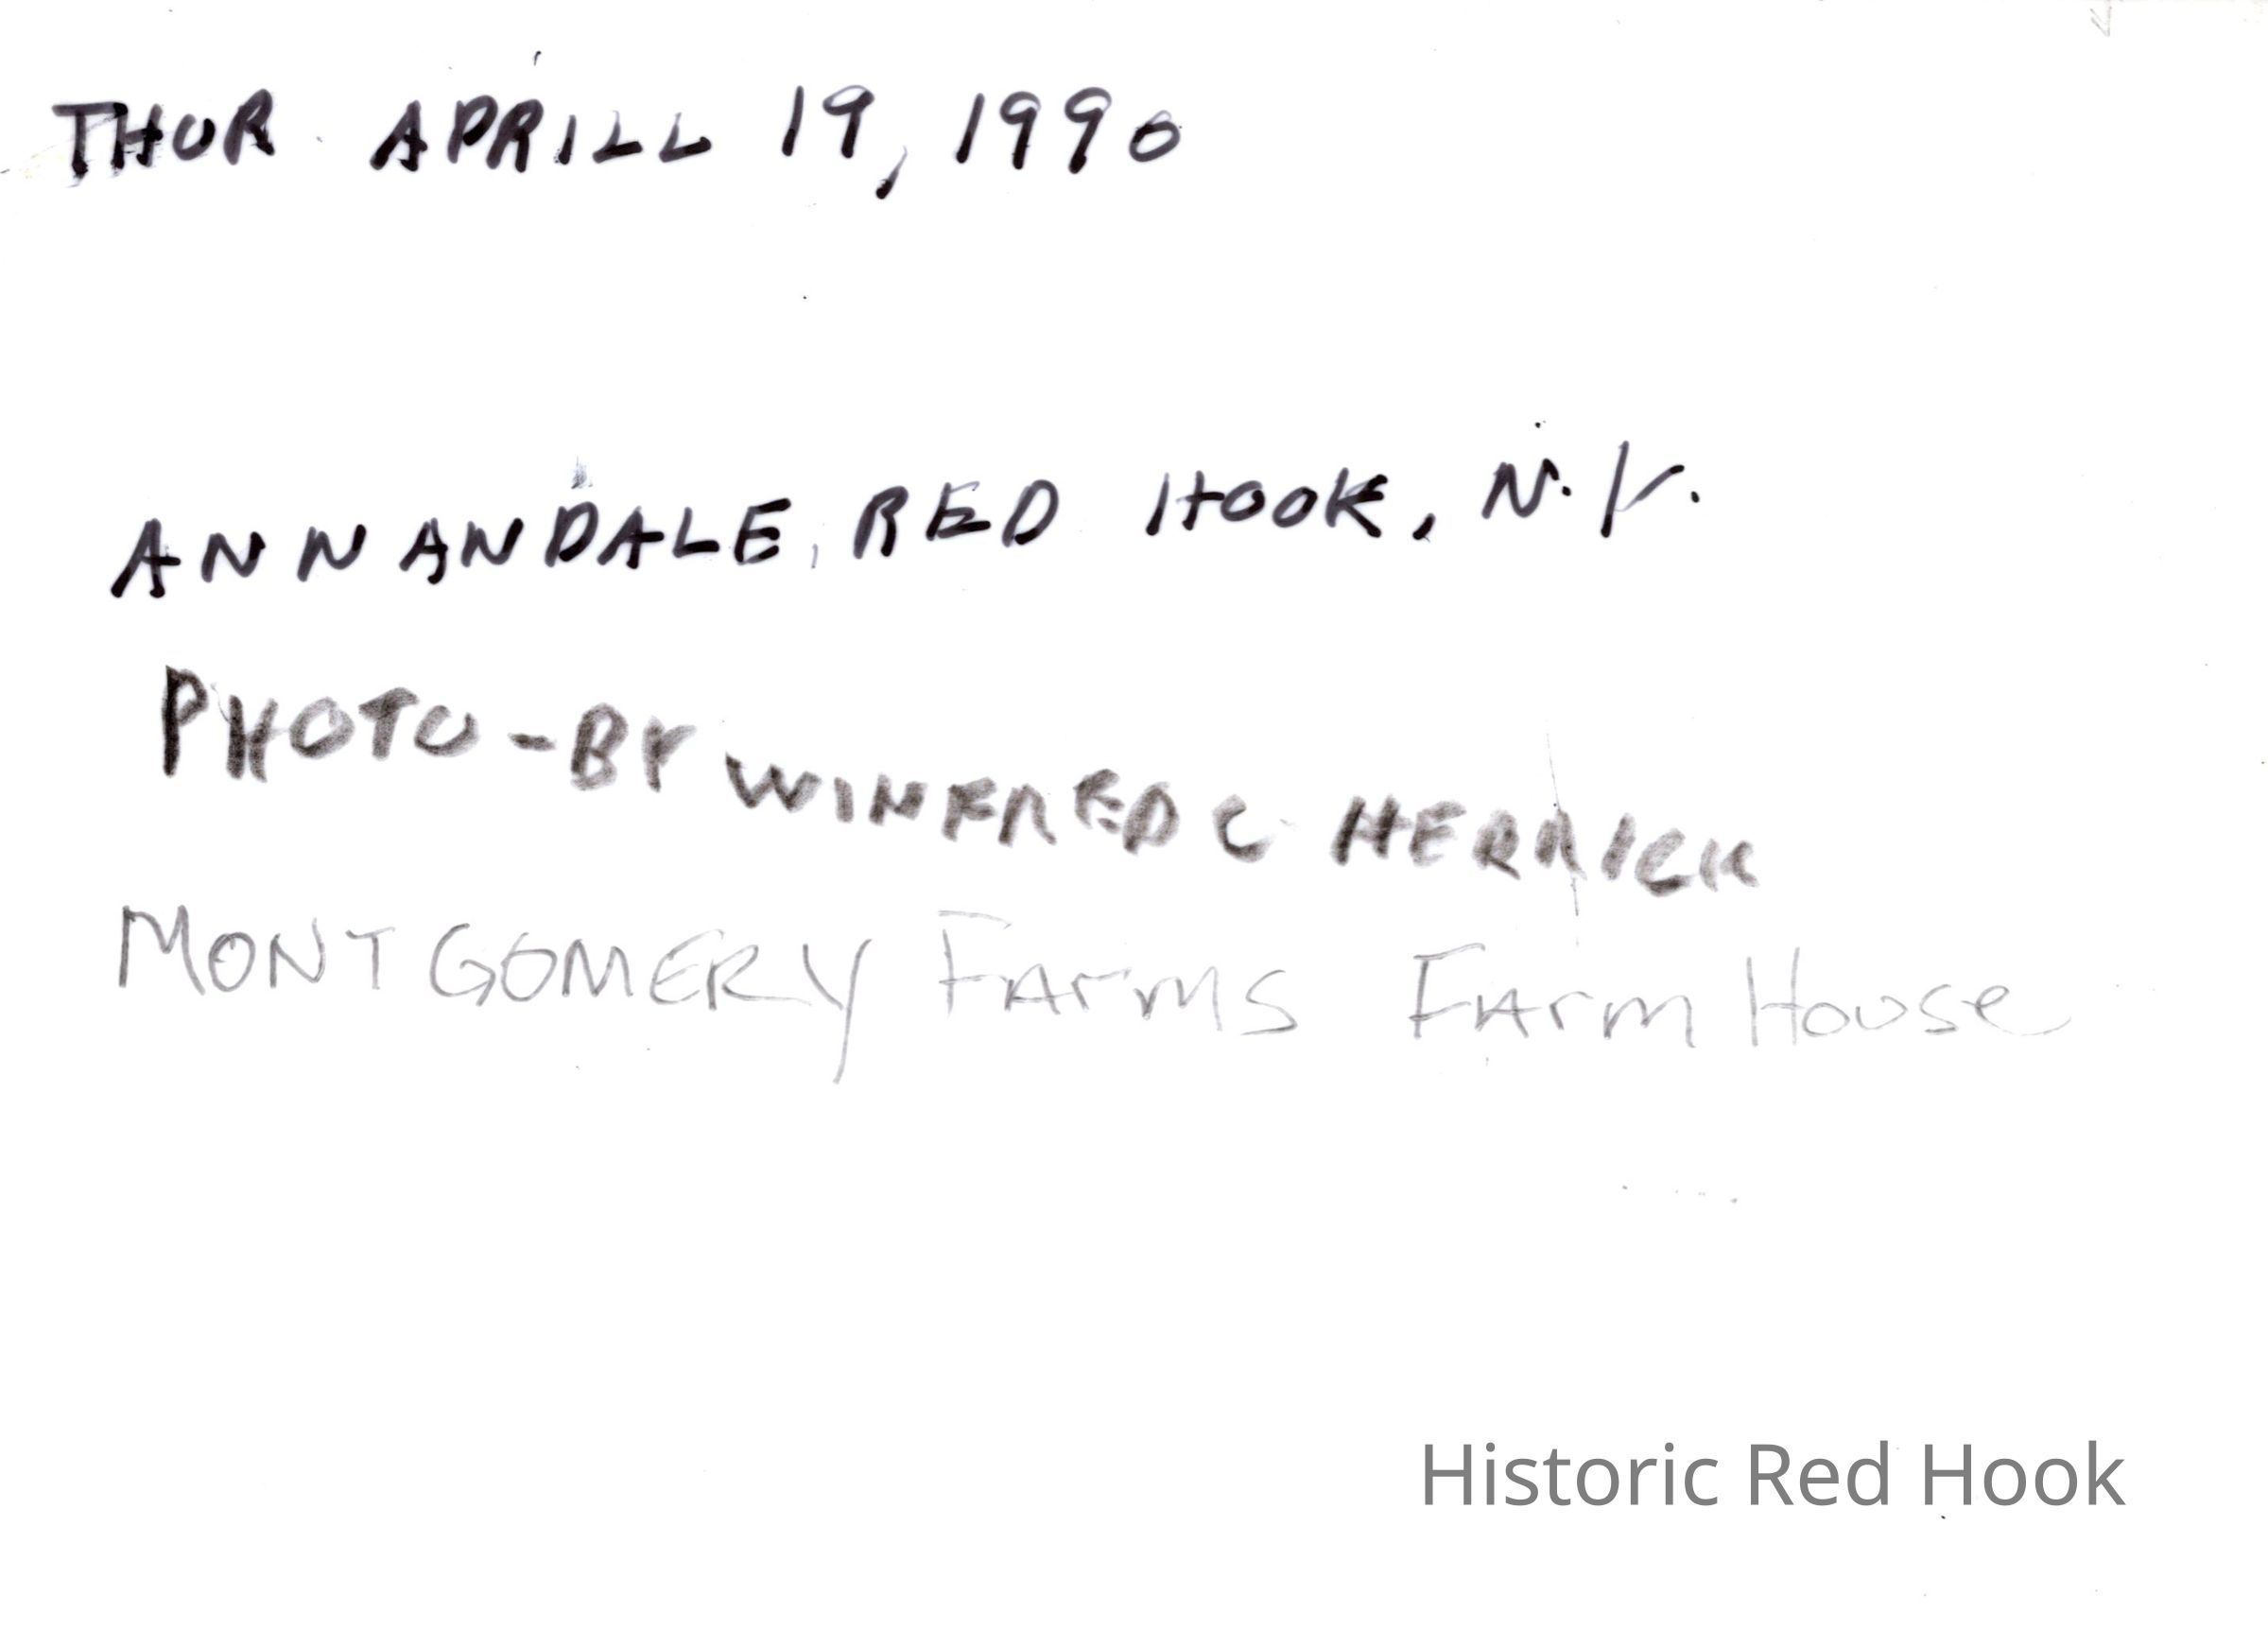 THUR APRILL 19, 1990
ANNANDALE, RED HOOK, N.Y.
PHOTO-BY WINFRED C HERRICK
MONTGOMERY FARMS FARM HOUSE
Historic Red Hook